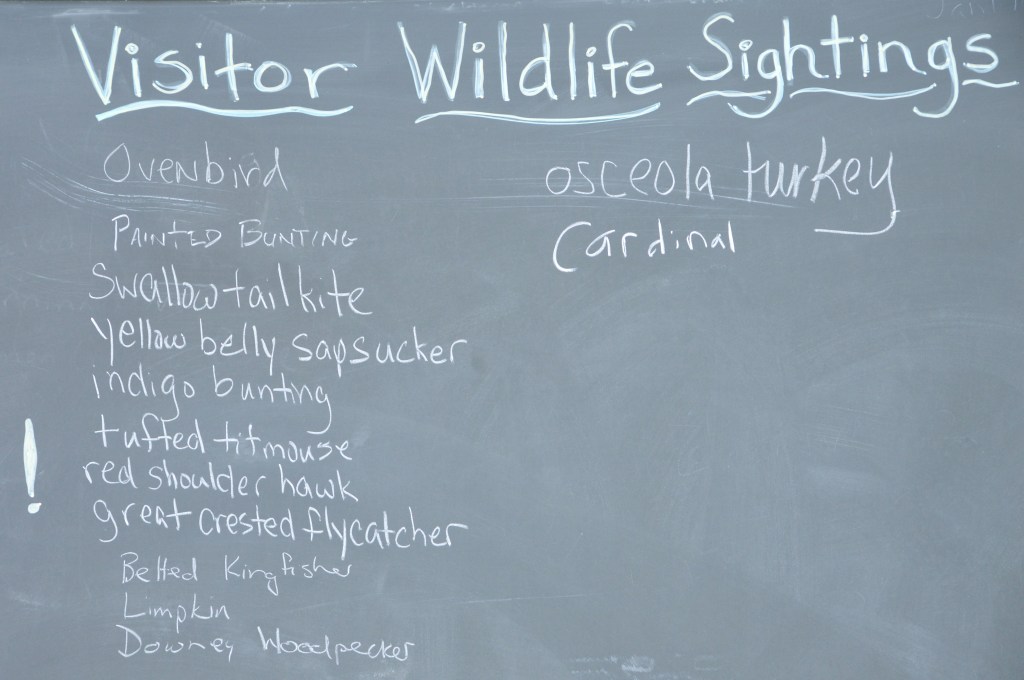 Visitor Wildlife Sightings
Ovenbird
PAINTED BUNTING
Swallow tail kite
yellow belly sapsucker
indigo bunting
tufted titmouse
red shoulder hawk
great crested flycatcher
Belted Kingfisher
Limpkin
Downey Woodpecker
!
osceola turkey
Cardinal